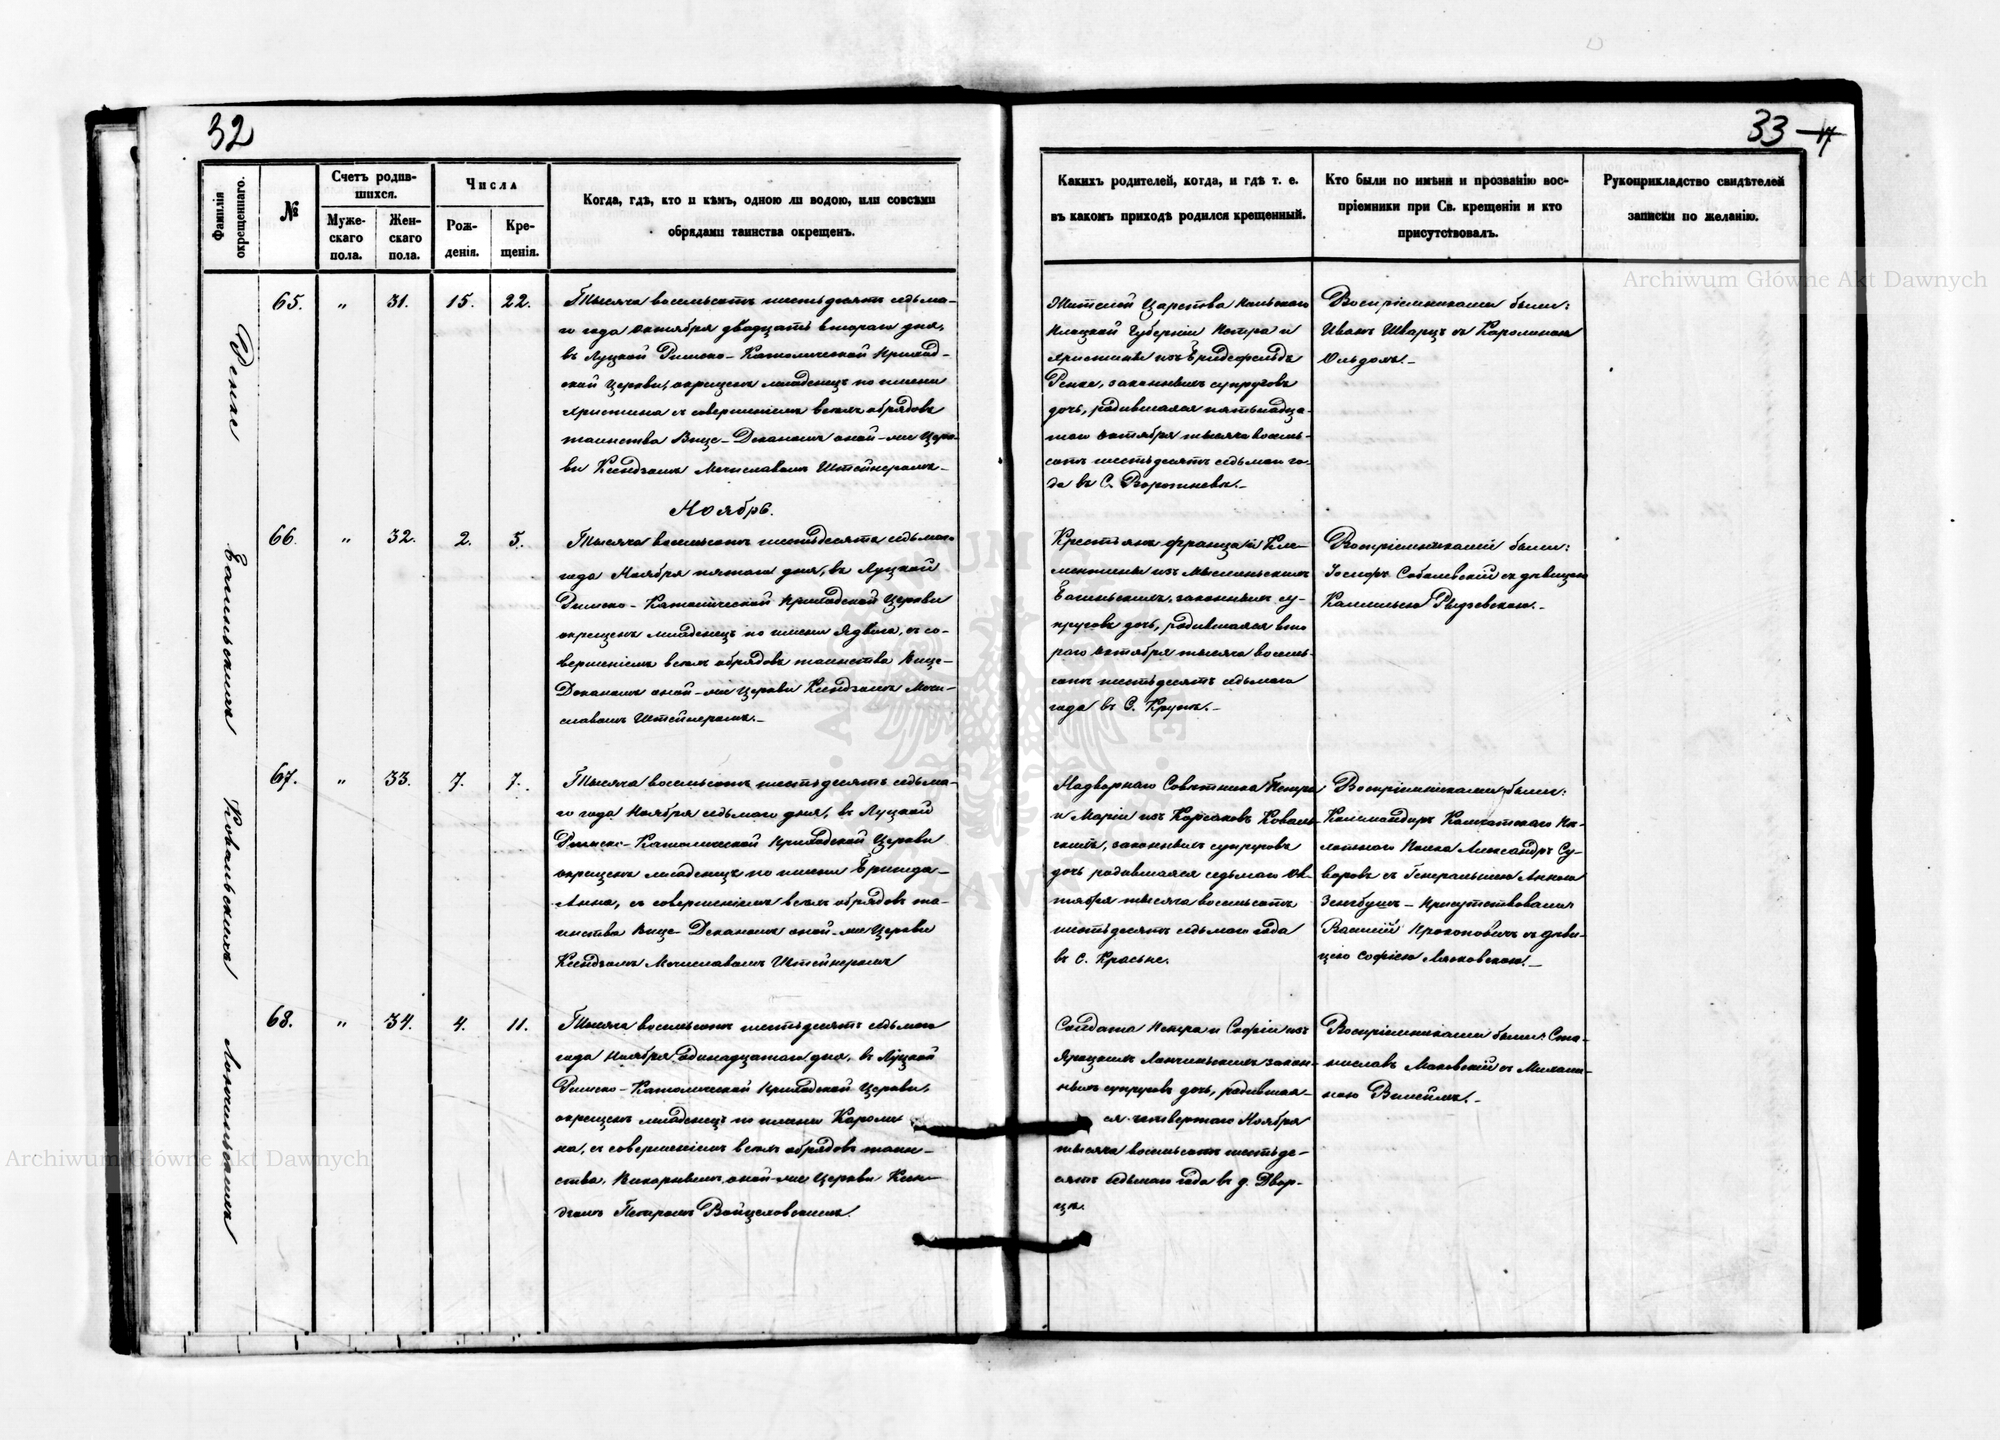 32
Фамилія окрещеннаго.
№
Счетъ родив-
шихся.
Муже-
скаго
пола.
Жен-
скаго
пола.
Числа
Рож-
денія.
Кре-
щенія.
Когда, гдѣ, кто и кѣмъ, одною ли водою, или совсѣми
обрядами таинства окрещенъ.
Ренке
65. „ 31. 15. 22.
Тысяча восемьсотъ шестьдесятъ седьма-
го года Октября двадцать втораго дня,
въ Луцкой Римско-Католической Приход-
ской Церкви, окрещенъ младенецъ по имени
Христина съ совершеніемъ всѣхъ обрядовъ
таинства Вице-Деканомъ оной-же Церк-
ви Ксендзомъ Мечиславомъ Штейнеромъ.-
Ноябрь.
66. „ 32. 2. 5.
Тысяча восемьсотъ шестьдесятъ седьмаго
года Ноября пятаго дня, въ Луцкой
Римско-Католической Приходской Церкви
окрещенъ младенецъ по имени Ядвига, съ со-
вершеніемъ всѣхъ обрядовъ таинства Вице-
Деканомъ оной-же Церкви Ксендзомъ Мечи-
славомъ Штейнеромъ.-
Ковальскихъ
67. „ 33. 7. 7.
Тысяча восемьсотъ шестьдесятъ седьма-
го года Ноября седьмаго дня, въ Луцкой
Римско-Католической Приходской Церкви
окрещенъ младенецъ по имени Бригида-
Анна, съ совершеніемъ всѣхъ обрядовъ та-
инства Вице-Деканомъ оной-же Церкви
Ксендзомъ Мечиславомъ Штейнеромъ
68. „ 34. 4. 11.
Тысяча восемьсотъ шестьдесятъ седьмаго
года Ноября одинадцатаго дня, въ Луцкой
Римско-Католической Приходской Церкви,
окрещенъ младенецъ по имени Кароли
на, съ совершеніемъ всѣхъ обрядовъ таин-
ства, Викарнымъ оной-же Церкви Ксен-
дзомъ Петромъ Войцеховскимъ.
33 17
Какихъ родителей, когда, и гдѣ т. е.
въ какомъ приходѣ родился крещенный.
Кто были по имѣни и прозванію вос-
пріемники при Св. крещеніи и кто
присутствовалъ.
Рукоприкладство свидѣтелей
записки по желанію.
Жителей Царства Польскаго
Плоцкой Губерніи Петра и
Христины изъ
Ренке, законныхъ супруговъ
дочь, родившаяся пятьнадца-
таго Октября тысяча восемь-
сотъ шестьдесятъ седьмаго го-
да въ С. .-
Воспріемниками были:
Иванъ Шварцъ съ Каролиною
.-
Крестьянъ Франца и Кле-
ментины изъ
законныхъ су-
пруговъ дочь, родившаяся вто-
раго Октября тысяча восемь-
сотъ шестьдесятъ седьмаго
года въ С. .-
Воспріемниками были:
Іосифъ Соболевскій съ дѣвицею
Камилью .-
Надворнаго Совѣтника Петра
и Маріи изъ Корсаковъ Коваль-
скихъ, законныхъ супруговъ
дочь родившаяся седьмаго Ок-
тября тысяча восемьсотъ
шестьдесятъ седьмаго года
въ С. Красне.
Воспріемниками были:
Коммандиръ Камчатскаго Пѣ-
хотнаго Полка Александръ Су-
воровъ съ Генеральшею Анною
- Присутствовали
Василій Прокоповичъ съ дѣви-
цею Софіею .-
Солдата Петра и Софіи изъ
закон-
ныхъ супруговъ дочь, родившая-
ся четвертаго Ноября
тысяча восемьсотъ шестьде-
сятъ седьмаго года въ д. Двор-
цѣ.
Воспріемниками были: Ста-
ниславъ Маковскій съ
.-
Archiwum Główne Akt Dawnych
Archiwum Główne Akt Dawnych